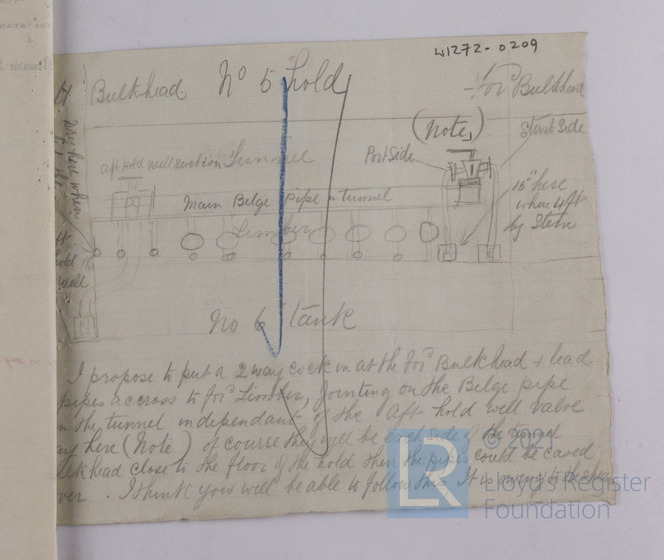 W1272-0209
Bulkhead No 5 hold For'd Bulkhead
(Note) Starb Side
aft Hold well suction Tunnel Port Side
Main Belge Pipe in tunnel
15" here
when 4 ft
by Stern
Limber
No 6 tank
I propose to put a 2 way cock in at the For'd Bulkhead & lead
pipes accross to for'd Limber, Jointing on the Belge pipe
in the tunnel independant of the aft hold well valve
here (Note) of course they will be each side of the tunnel
close to the floor of the hold then the pipes could be cased
. I think you will be able to follow this It is owing to the
© 2021
LR
Lloyd's Register
Foundation